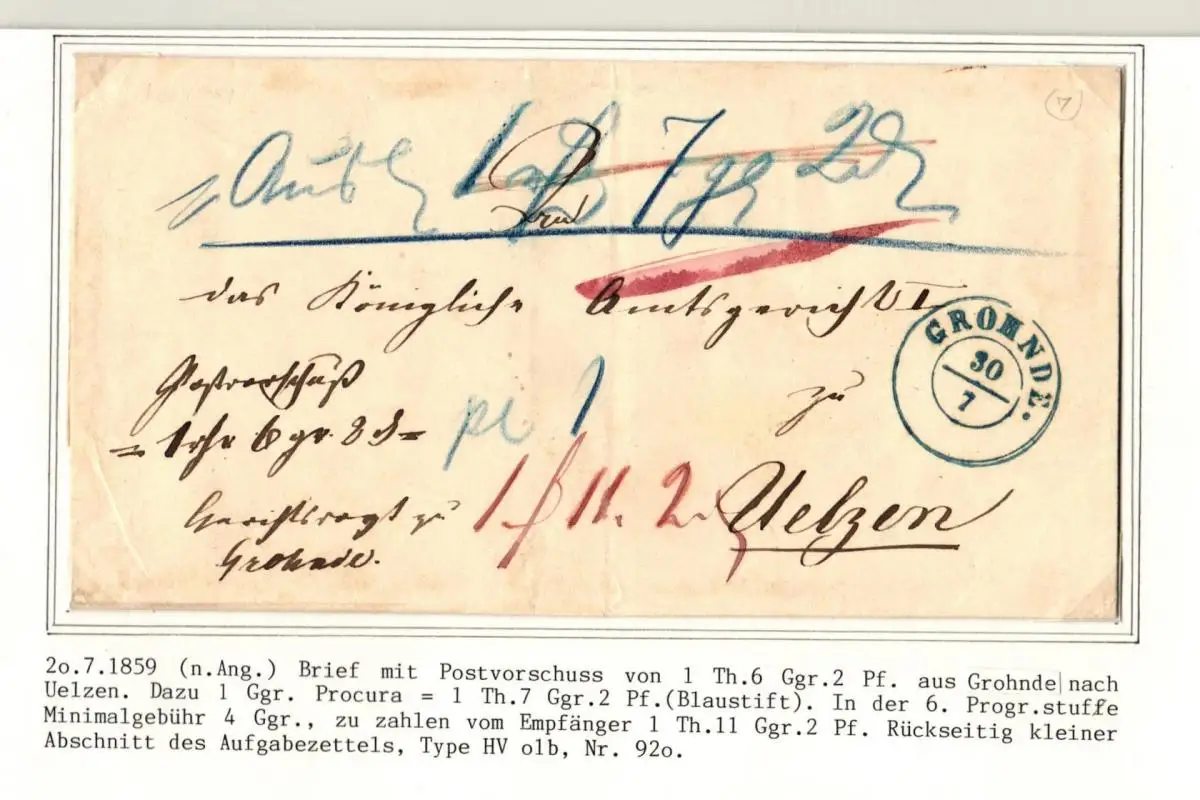 7
Ausl 1 rth 7 gr 2 d
das Königliche Amtsgericht I
GROHNDE.
30
7
Postvorschuß
= 1 rth 6 gr. 2 d =
zu
1 11. 2
Uelzen
Gerichtsvogt zu
Grohnde.
2o.7.1859 (n.Ang.) Brief mit Postvorschuss von 1 Th.6 Ggr.2 Pf. aus Grohnde nach
Uelzen. Dazu 1 Ggr. Procura = 1 Th.7 Ggr.2 Pf.(Blaustift). In der 6. Progr.stuffe
Minimalgebühr 4 Ggr., zu zahlen vom Empfänger 1 Th.11 Ggr.2 Pf. Rückseitig kleiner
Abschnitt des Aufgabezettels, Type HV olb, Nr. 92o.